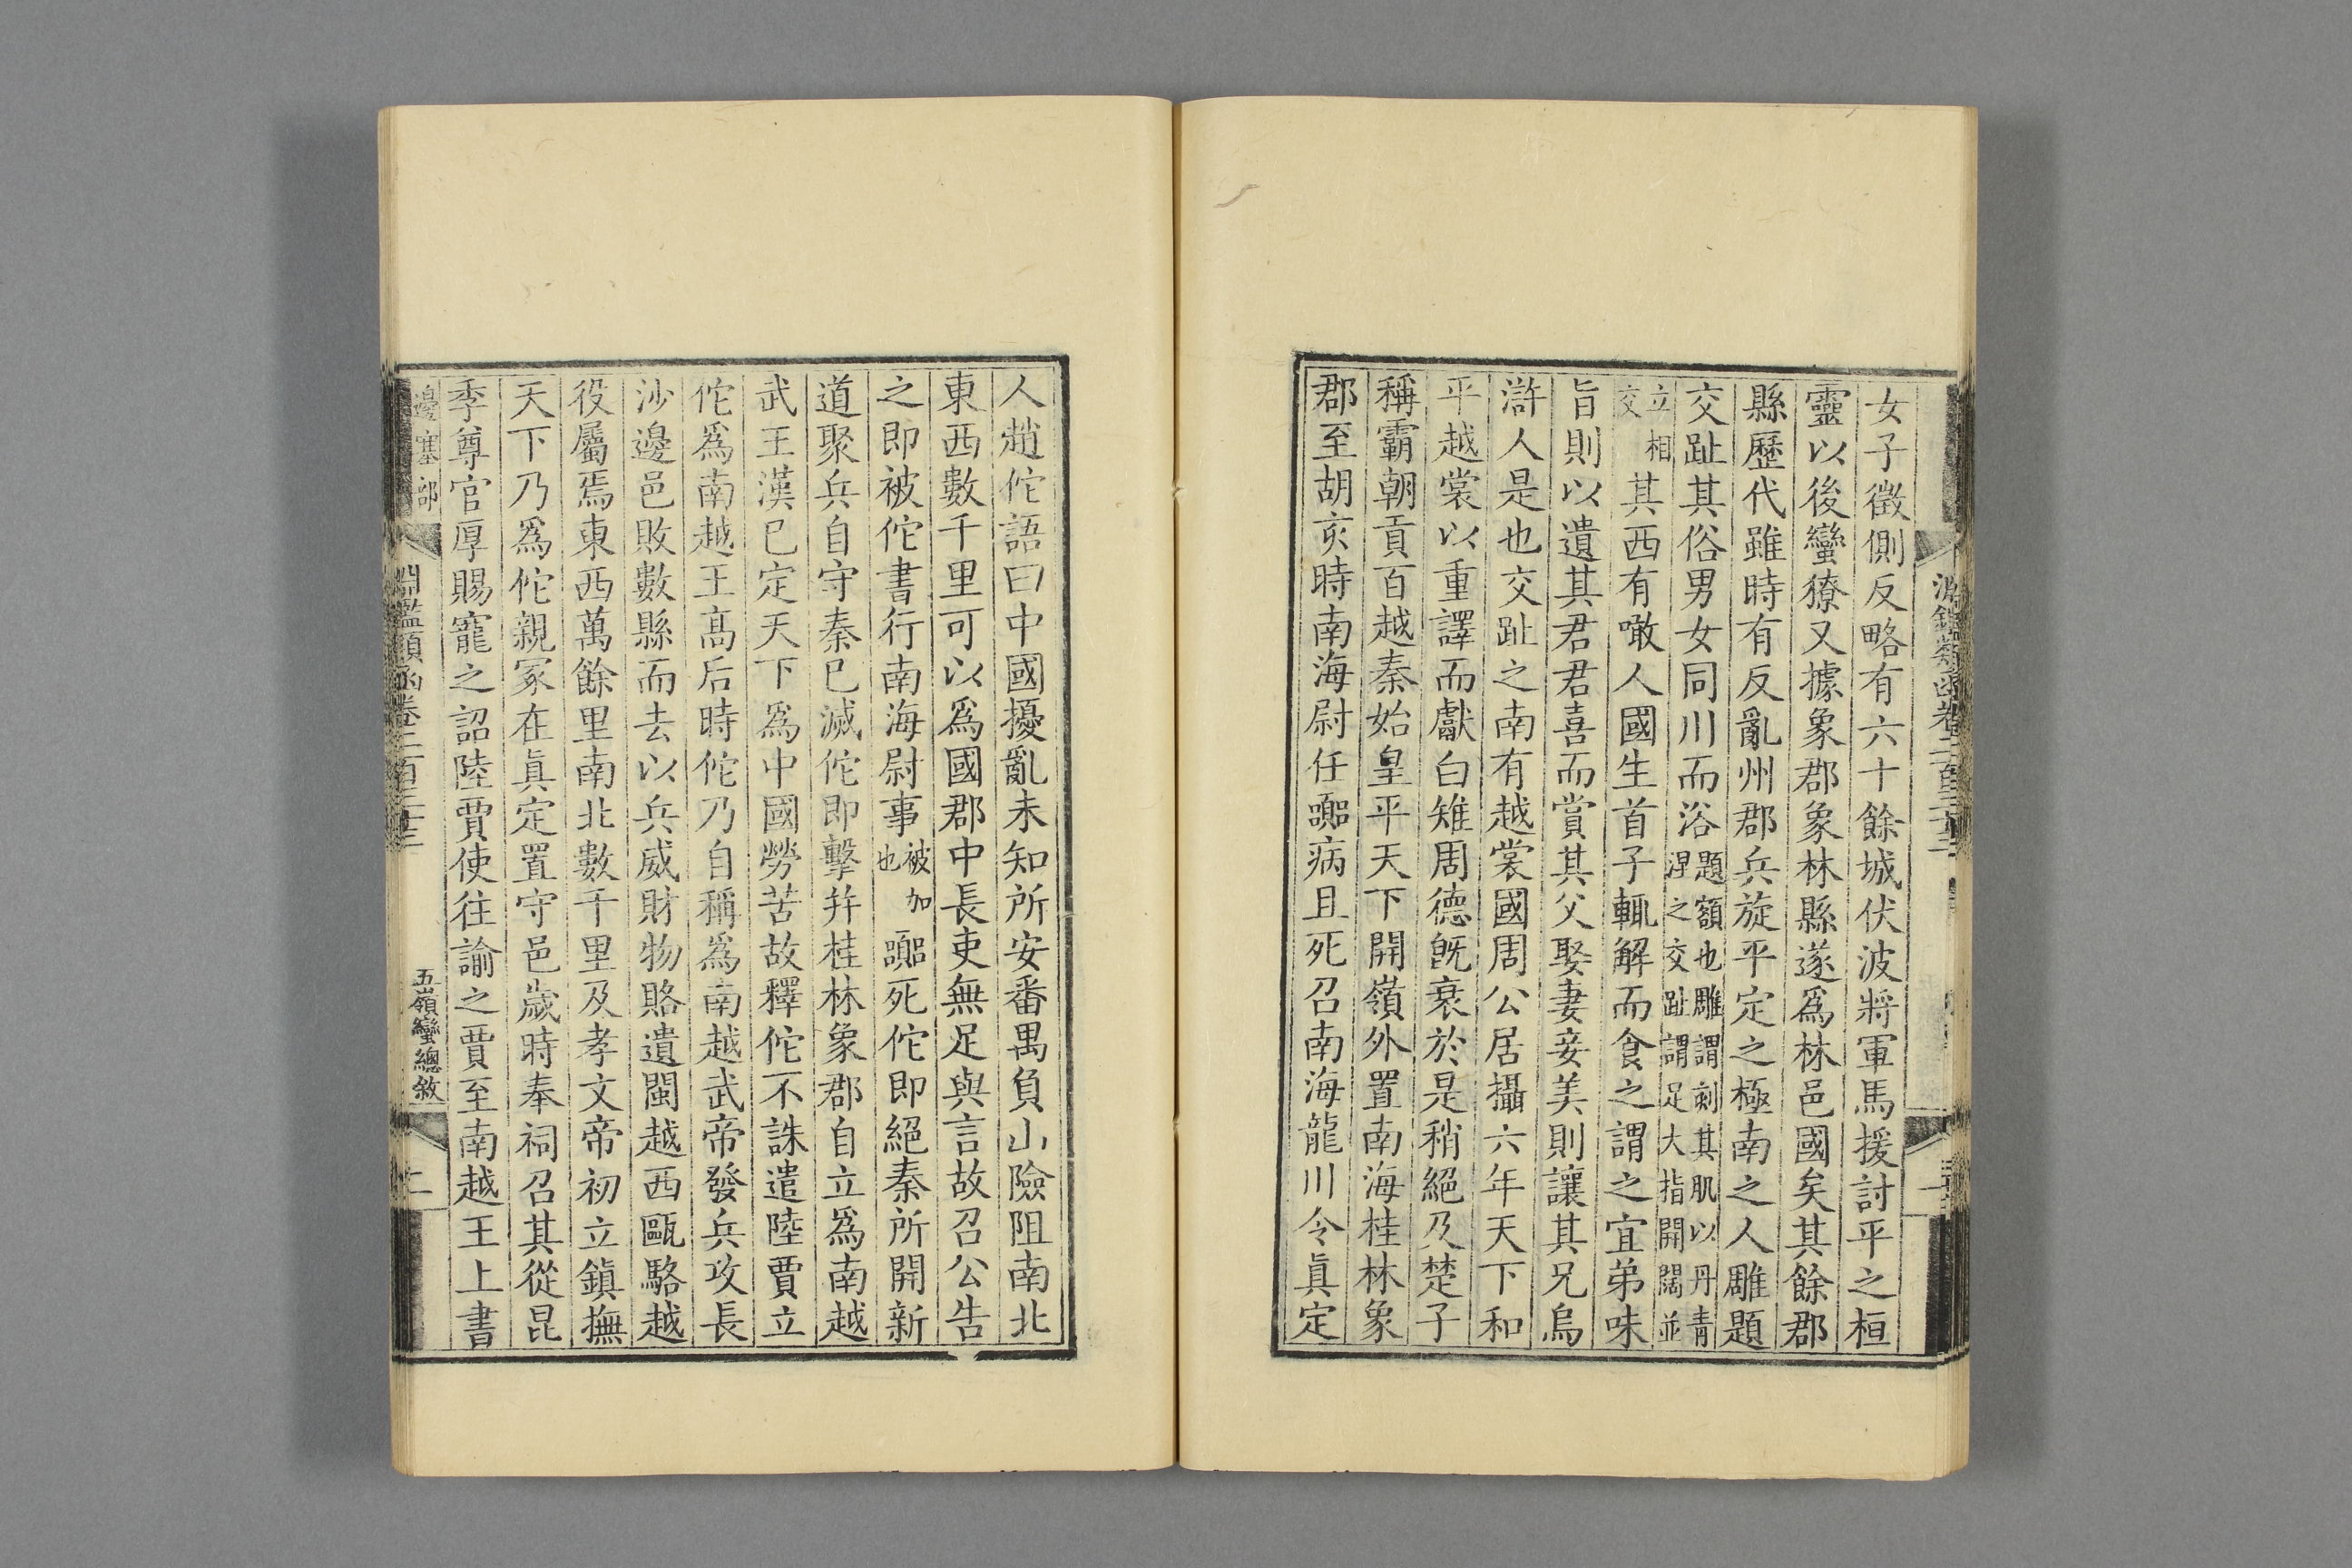 女子徵側反略有六十餘城伏波將軍馬援討平之桓
靈以後蠻獠又據象郡象林縣遂爲林邑國矣其餘郡
縣歷代雖時有反亂州郡兵旋平定之極南之人雕題
交趾其俗男女同川而浴題額也雕謂刺其肌以丹青涅之交趾謂足大指開闊並
立相交其西有噉人國生首子輒解而食之謂之宜弟味
旨則以遺其君君喜而賞其父娶妻妾美則讓其兄烏
滸人是也交趾之南有越裳國周公居攝六年天下和
平越裳以重譯而獻白雉周德旣衰於是稍絕及楚子
稱霸朝貢百越秦始皇平天下開嶺外置南海桂林象
郡至胡亥時南海尉任嚻病且死召南海龍川令眞定
人趙佗語曰中國擾亂未知所安番禺負山險阻南北
東西數千里可以爲國郡中長吏無足與言故召公告
之即被佗書行南海尉事被加也嚻死佗即絕秦所開新
道聚兵自守秦已滅佗即擊幷桂林象郡自立爲南越
武王漢已定天下爲中國勞苦故釋佗不誅遣陸賈立
佗爲南越王高后時佗乃自稱爲南越武帝發兵攻長
沙邊邑敗數縣而去以兵威財物賂遺閩越西甌駱越
役屬焉東西萬餘里南北數千里及孝文帝初立鎭撫
天下乃爲佗親冢在眞定置守邑歲時奉祠召其從昆
季尊官厚賜寵之詔陸賈使往諭之賈至南越王上書
邊塞部
淵鑑類函卷二百三十三
五嶺蠻總敘
二